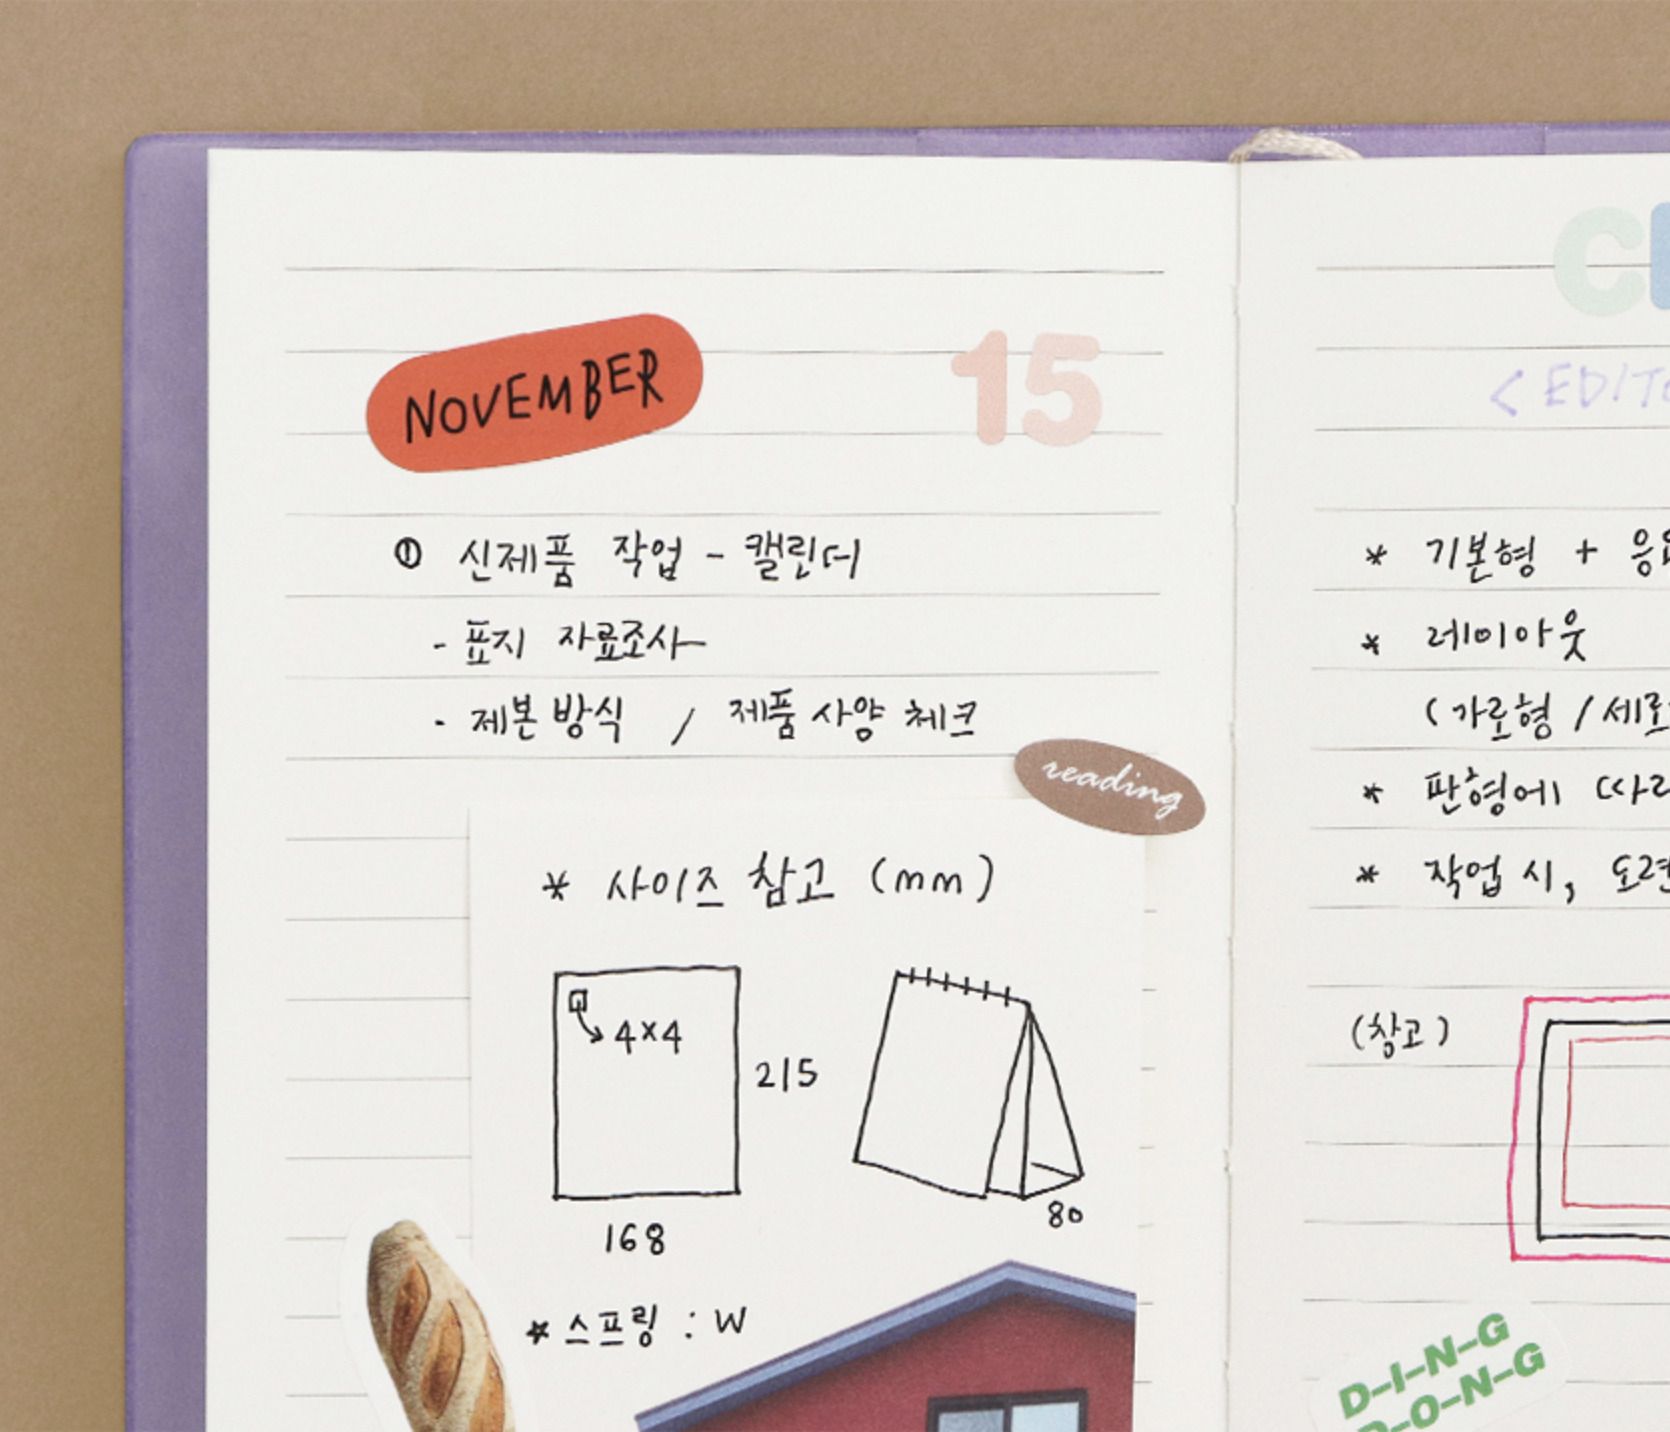 NOVEMBER 15
① 신제품 작업 - 캘린더
- 표지 자료조사
- 제본 방식 / 제품 사양 체크
reading
* 사이즈 참고 (mm)
4×4
215
168
80
* 스프링 : W
C
< EDIT
* 기본형 +
* 레이아웃
(가로형 /
* 판형에
* 작업 시,
(참고)
D-I-N-G
D-O-N-G